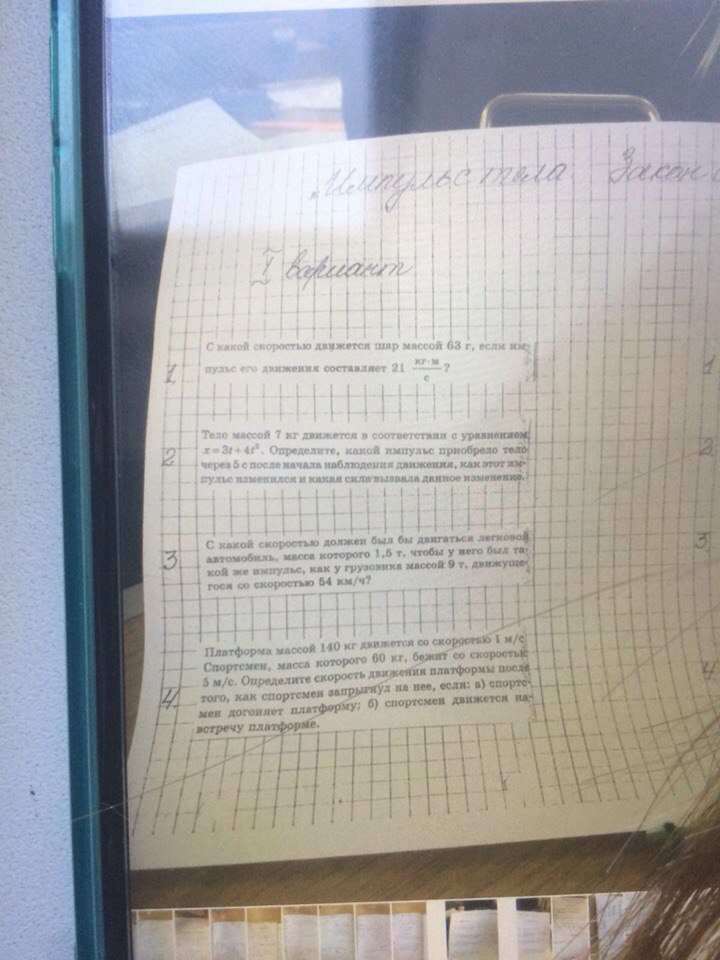 Импульс тела Закон с
I вариант
С какой скоростью движется шар массой 63 г, если им-
1. пульс его движения составляет 21 кг·м/с ?
Тело массой 7 кг движется в соответствии с уравнением
2 x=3t+4t². Определите, какой импульс приобрело тело
через 5 с после начала наблюдения движения, как этот им-
пульс изменился и какая сила вызвала данное изменение.
С какой скоростью должен был бы двигаться легковой
3 автомобиль, масса которого 1,5 т, чтобы у него был та-
кой же импульс, как у грузовика массой 9 т, движуще-
гося со скоростью 54 км/ч?
Платформа массой 140 кг движется со скоростью 1 м/с
Спортсмен, масса которого 60 кг, бежит со скоростью
5 м/с. Определите скорость движения платформы после
4. того, как спортсмен запрыгнул на нее, если: а) спортс-
мен догоняет платформу; б) спортсмен движется на-
встречу платформе.
1
2
3
4